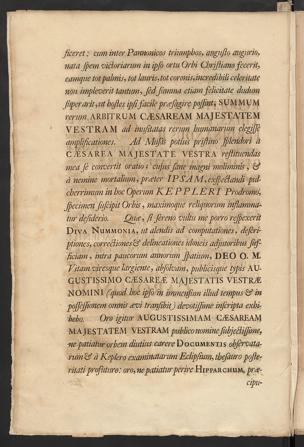 ficeret: cum inter Pannonicos triumphos, augusto augurio,
nata spem victoriarum in ipso ortu Orbi Christiano fecerit,
eamque tot palmis, tot lauris, tot coronis, incredibili celeritate
non impleverit tantum, sed summa etiam felicitate dudum
superarit, ut hostes ipsi facile præsagire possint, SUMMUM
rerum ARBITRUM CAESAREAM MAJESTATEM
VESTRAM ad inusitatas rerum humanarum elegisse
amplificationes. Ad Musas potius pristino splendori à
CAESAREA MAJESTATE VESTRA restituendas
mea se convertit oratio: cujus sane magni molminis, &
à nemine mortalium, præter IPSAM, exspectandi pul-
cherrimum in hoc Operum KEPPLERI Prodromo,
specimen suscipit Orbis, maximoque reliquorum inflamma-
tur desiderio. Quæ, si sereno vultu me porro respexerit
DIVA NUMMONIA, ut alendis ad computationes, descri-
ptiones, correctiones & delineationes idoneis adjutoribus suf-
ficiam, intra paucorum annorum spatium, DEO O. M.
Vitam viresque largiente, absolvam, publicisque typis AU-
GUSTISSIMO CAESAREÆ MAJESTATIS VESTRÆ
NOMINI (quod huc ipso in immensum illud tempus & in
possessionem omnis ævi transibit) devotissime inscripta exhi-
bebo. Oro igitur AUGUSTISSIMAM CAESAREAM
MAJESTATEM VESTRAM publico nomine subjectissime,
ne patiatur orbem diutius carere DOCUMENTIS observata-
rum & à Keplero examinatarum Eclipsium, thesauro poste-
ritati profuturo: oro, ne patiatur perire HIPPARCHUM, præ-
cipu-